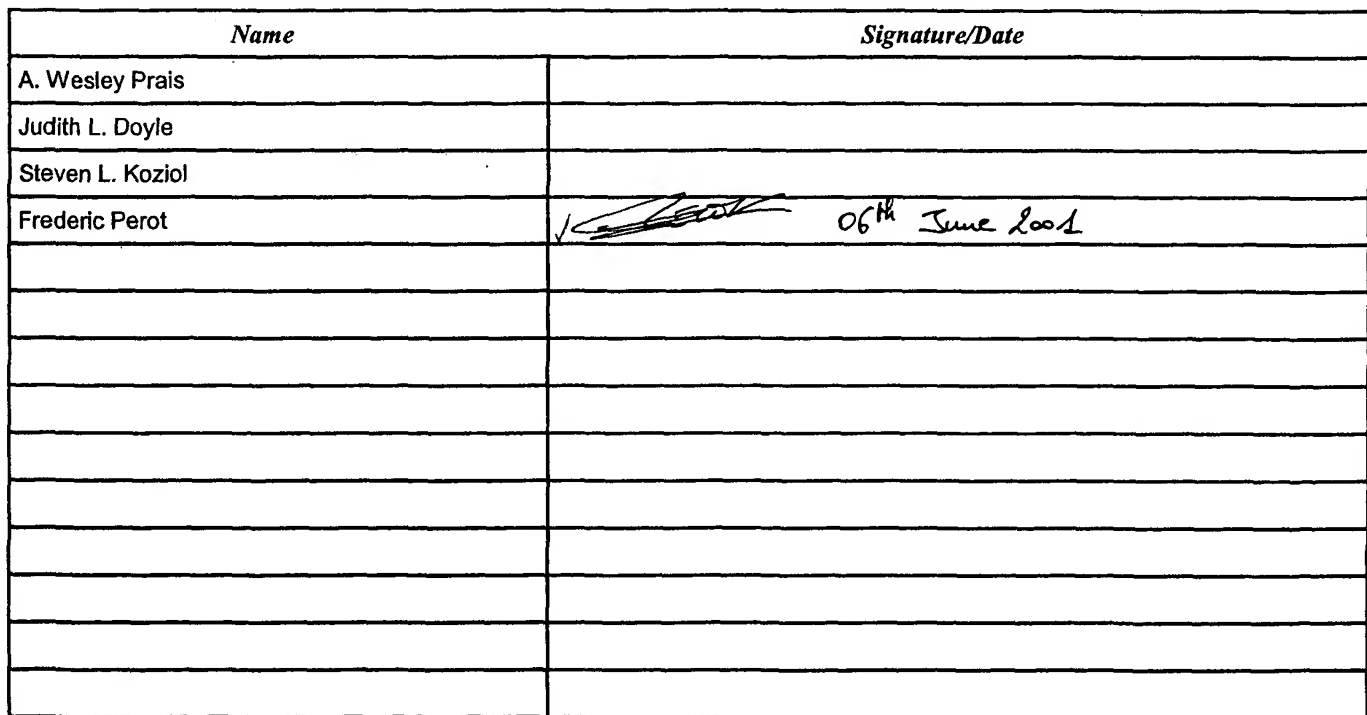 Name Signature/Date
A. Wesley Prais
Judith L. Doyle
Steven L. Koziol
Frederic Perot 06th June 2001